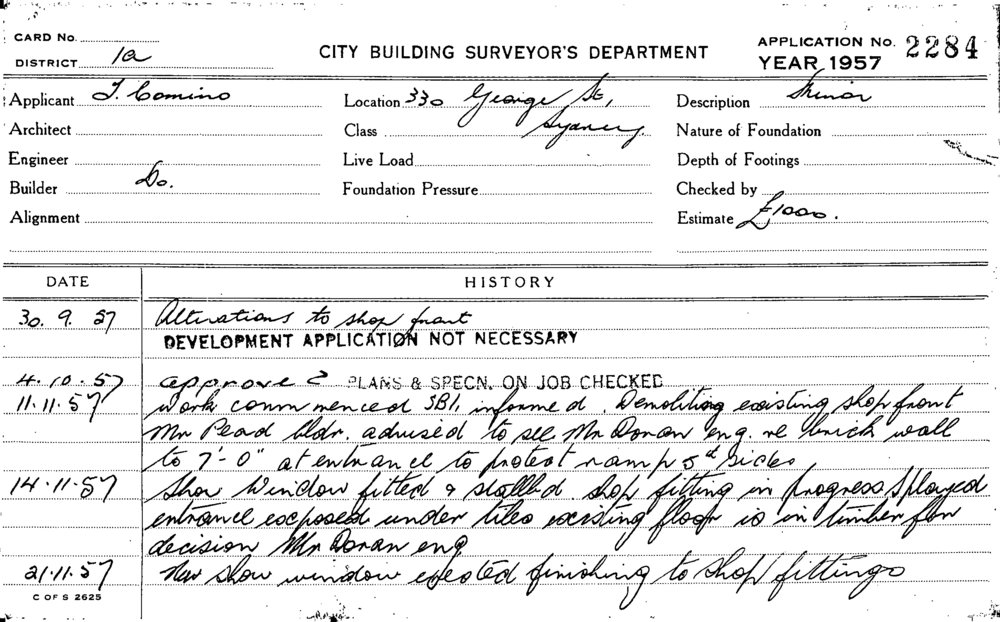 CARD No.
DISTRICT 1a
CITY BUILDING SURVEYOR'S DEPARTMENT
APPLICATION No. 2284
YEAR 1957
Applicant J. Comino
Location 330 George St,
Description Minor
Architect
Class Sydney
Nature of Foundation
Engineer
Live Load
Depth of Footings
Builder Do.
Foundation Pressure
Checked by
Alignment
Estimate £1000.
DATE HISTORY
30. 9. 57 Alterations to shop front
DEVELOPMENT APPLICATION NOT NECESSARY
4.10.57 approve PLANS & SPECN. ON JOB CHECKED
11.11.57 Work commenced SBI, informed. Demoliting existing shop front
Mr Pead bldr. advised to see Mr Doran eng. re brick wall
to 7'-0" at entrance to protect ramp sides
14.11.57 Show Window fitted & stallbd. shop fitting in progress Splayed
entrance exposed under tiles existing floor is in timber for
decision Mr Doran eng
21.11.57 New show window erected finishing to shop fittings
C OF S 2625